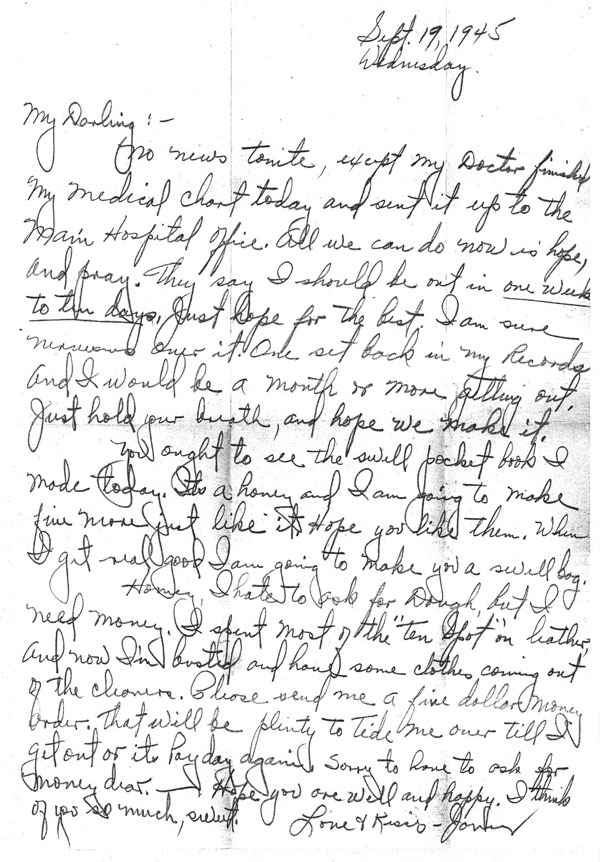 Sept. 19, 1945
Wednesday.
My Darling :-
No news tonite, except my Doctor finished
my medical chart today and sent it up to the
Main Hospital office. All we can do now is hope,
and pray. They say I should be out in one week
to ten days. Just hope for the best. I am sure
nervous over it. One set back in my Records
and I would be a month or more getting out.
Just hold your breath, and hope we make it.
You ought to see the swell pocket book I
made today. Its a honey and I am going to make
five more just like it. Hope you like them. When
I get real good I am going to make you a swell bag.
Honey, I hate to ask for Dough, but I
need money. I spent most of the "ten spot" on leather,
and now I'm busted and have some clothes coming out
of the cleaners. Please send me a five dollar money
order. That will be plenty to Tide me over till I
get out or its Pay day again. Sorry to have to ask for
money dear. — Hope you are well and happy. I think
of you so much, sweet.
Love & Kisses -